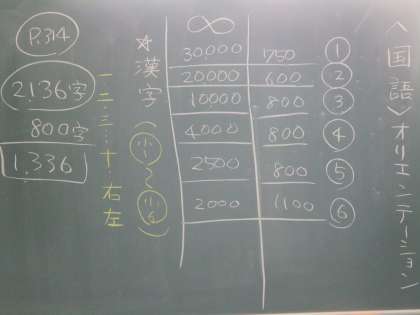 〈国語〉オリエンテーション
∞
30.000 750 ①
20000 600 ②
10000 800 ③
4000 800 ④
2500 800 ⑤
2000 1100 ⑥
☆漢字(小1～小6)
一二三…十…右左
P.314
2.136字
800字
1.336